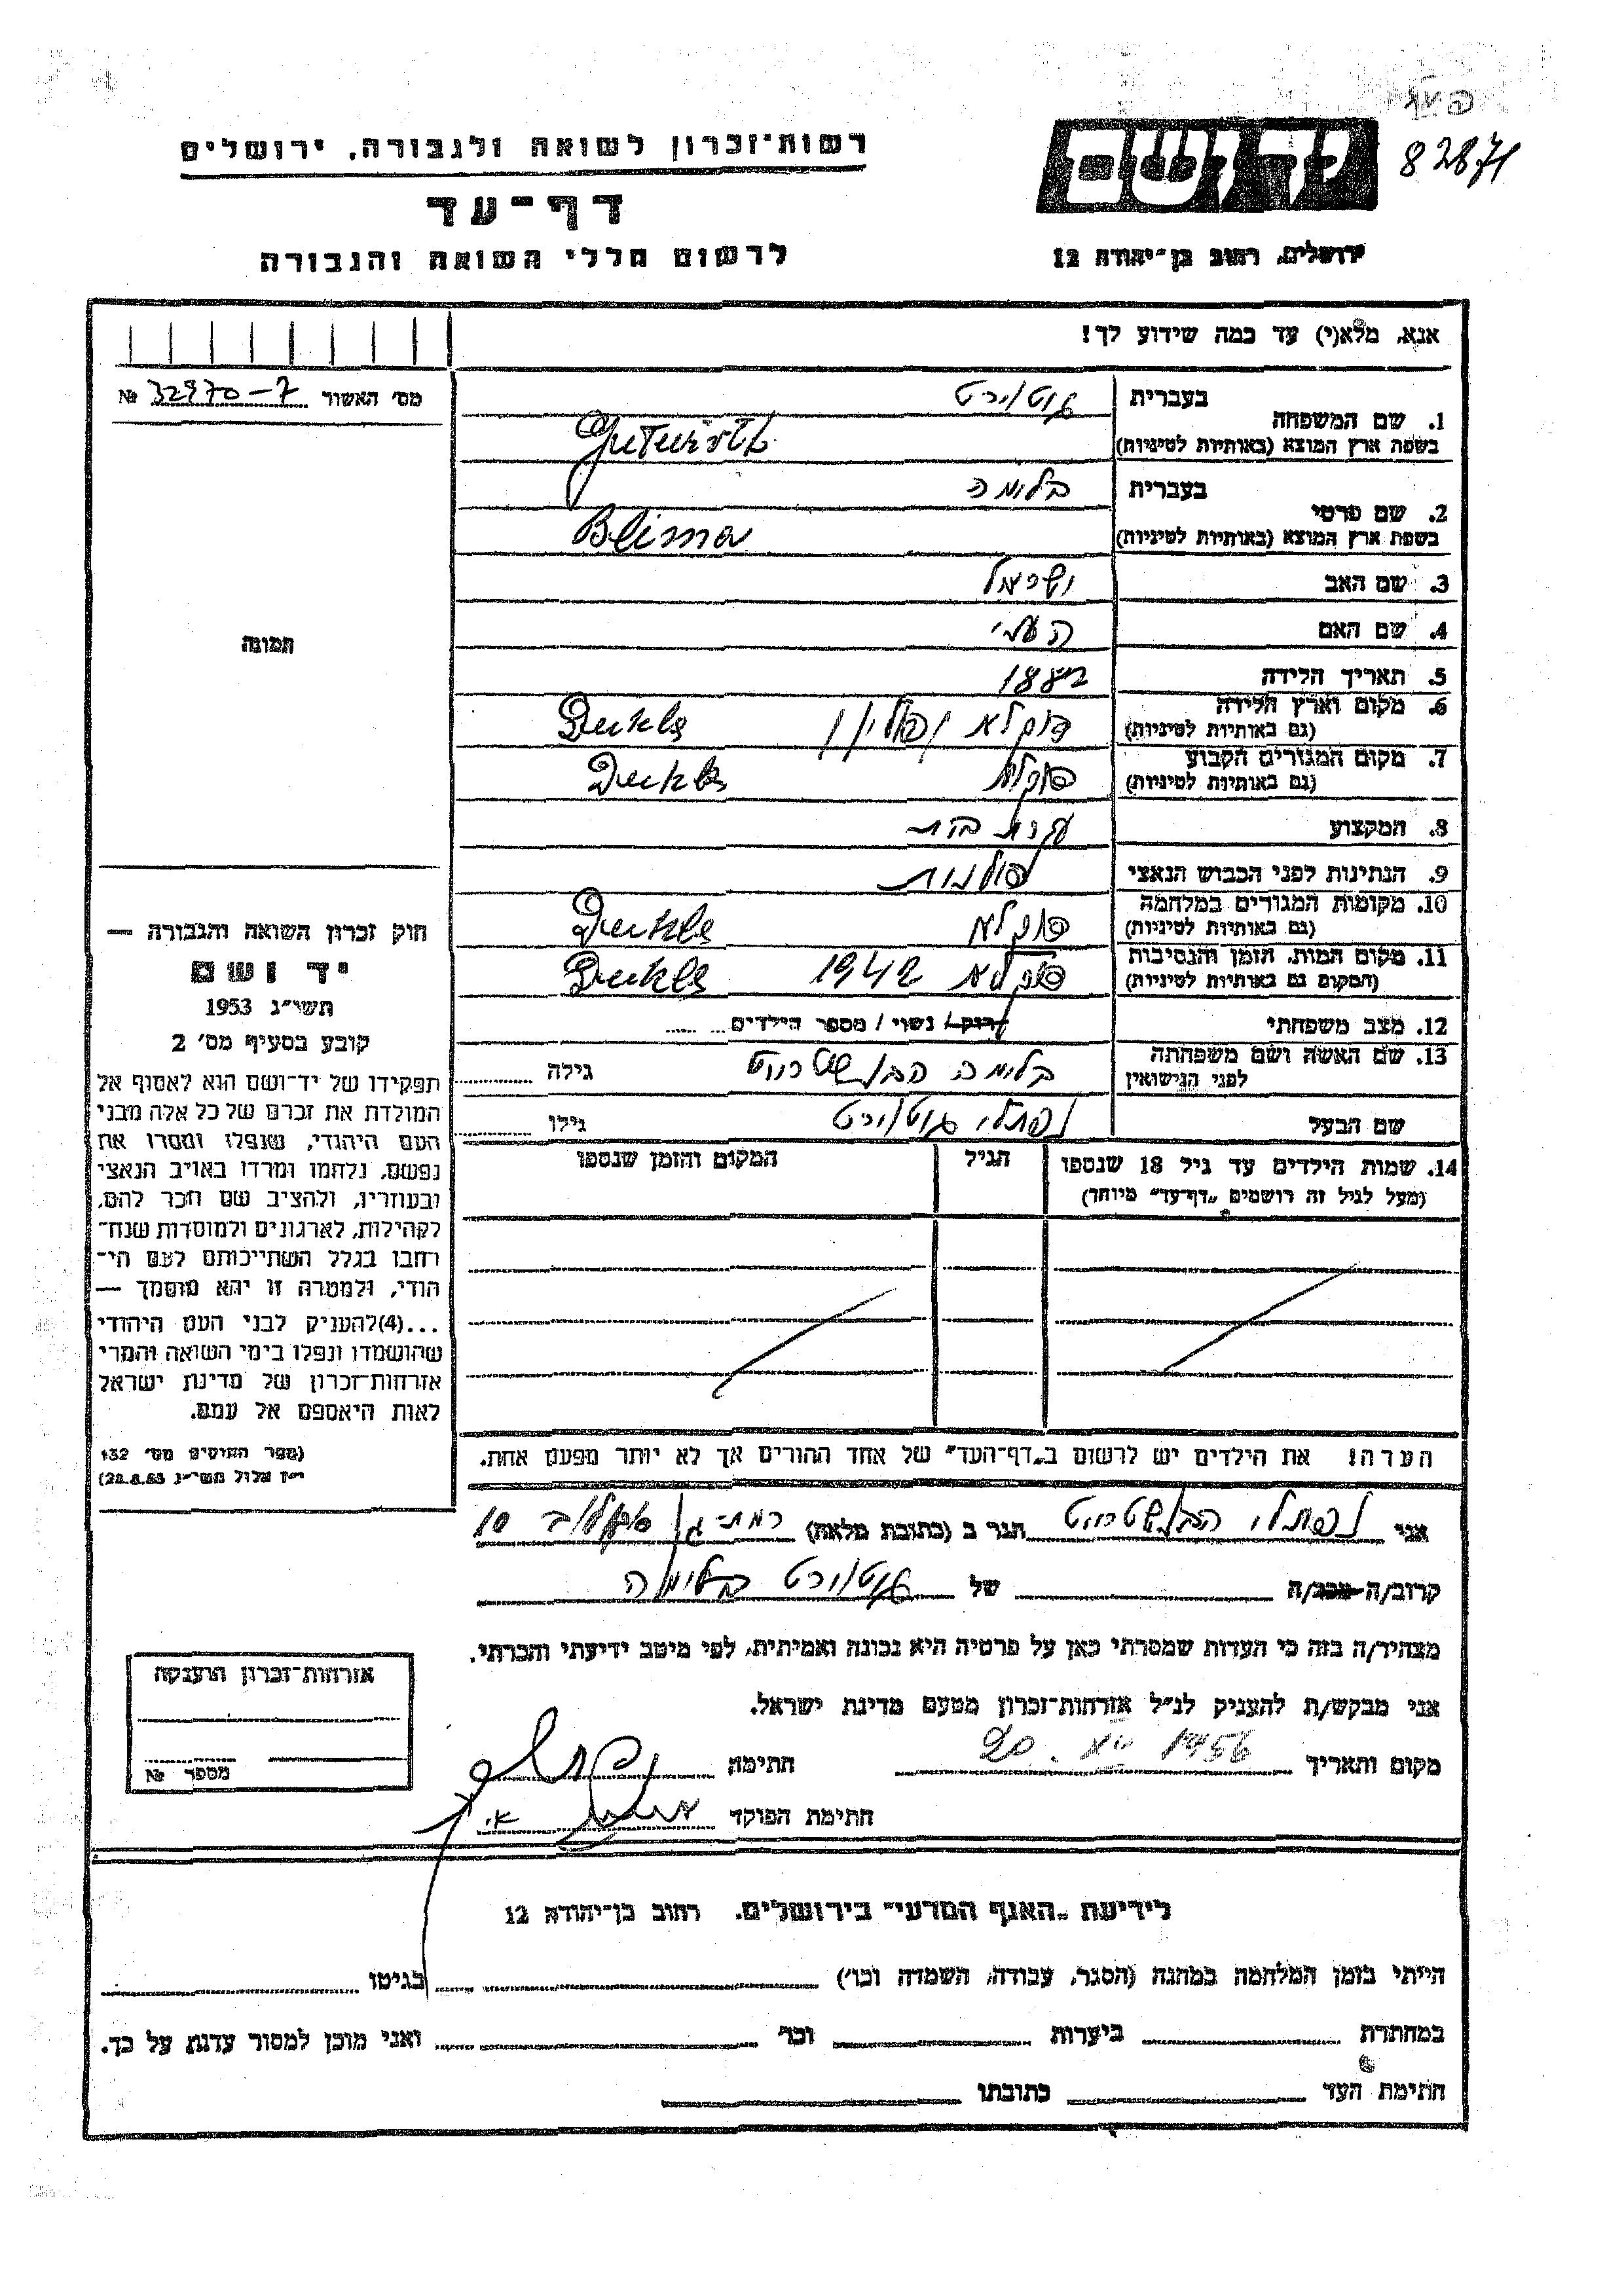 82871
רשות־זכרון לשואה ולגבורה, ירושלים
דף־עד
לרשום חללי השואה והגבורה
יד ושם
ירושלים, רחוב בן־יהודה 12
אנא, מלא(י) עד כמה שידוע לך!
מס׳ האשור № 32970-7
1. שם המשפחה
בעברית גוטוירט
בשפת ארץ המוצא (באותיות לטיניות) Gutwirth
2. שם פרטי
בעברית בלומה
בשפת ארץ המוצא (באותיות לטיניות) Blima
3. שם האב
4. שם האם
5. תאריך הלידה 1882
6. מקום וארץ הלידה (גם באותיות לטיניות) דוקלא פולין Dukla
7. מקום המגורים הקבוע (גם באותיות לטיניות) דוקלא Dukla
8. המקצוע עקרת בית
9. הנתינות לפני הכבוש הנאצי פולנית
10. מקומות המגורים במלחמה (גם באותיות לטיניות) דוקלא Dukla
11. מקום המות, הזמן והנסיבות (המקום גם באותיות לטיניות) דוקלא 1942 Dukla
12. מצב משפחתי רווק / נשוי / מספר הילדים
13. שם האשה ושם משפחתה לפני הנישואין בלומה הבנשטרייט גילה
שם הבעל נפתלי גוטוירט גילו
14. שמות הילדים עד גיל 18 שנספו
(מעל לגיל זה רושמים „דף־עד״ מיוחד)
הגיל
המקום והזמן שנספו
הערה! את הילדים יש לרשום ב„דף־העד״ של אחד ההורים אך לא יותר מפעם אחת.
תמונה
חוק זכרון השואה והגבורה —
יד ושם
תשי״ג 1953
קובע בסעיף מס׳ 2
תפקידו של יד־ושם הוא לאסוף אל
המולדת את זכרם של כל אלה מבני
העם היהודי, שנפלו ומסרו את
נפשם, נלחמו ומרדו באויב הנאצי
ובעוזריו, ולהציב שם וזכר להם,
לקהילות, לארגונים ולמוסדות שנח־
רחבו בגלל השתייכותם לעם הי־
הודי, ולמטרה זו יהא מוסמך —
...(4)להעניק לבני העם היהודי
שהושמדו ונפלו בימי השואה והמרי
אזרחות־זכרון של מדינת ישראל
לאות היאספם אל עמם.
(ספר החוקים מס׳ 132
י״ז אלול תשי״ג 28.8.53)
אני נפתלי הבנשטרייט הגר ב (כתובת מלאה) רמת־גן 10
קרוב/ה מכר/ה של גוטוירט בלומה
מצהיר/ה בזה כי העדות שמסרתי כאן על פרטיה היא נכונה ואמיתית, לפי מיטב ידיעתי והכרתי.
אני מבקש/ת להעניק לנ״ל אזרחות־זכרון מטעם מדינת ישראל.
מקום ותאריך 20. 1956 חתימה
חתימת הפוקד
אזרחות־זכרון הוענקה
מספר №
לידיעת „האגף המדעי״ בירושלים, רחוב בן־יהודה 12
הייתי בזמן המלחמה במחנה (הסגר, עבודה, השמדה וכו׳) בגיטו
במחתרת ביערות וכו׳ ואני מוכן למסור עדות על כך.
חתימת העד כתובתו